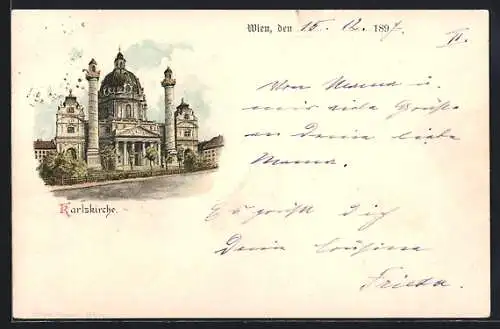 Wien, den 15. 12. 1897.
II.
Von Mama u.
mir viele Grüße
an Deine liebe
Mama.
Es grüßt Dich
Deine Cousine
Frieda.
Karlskirche.